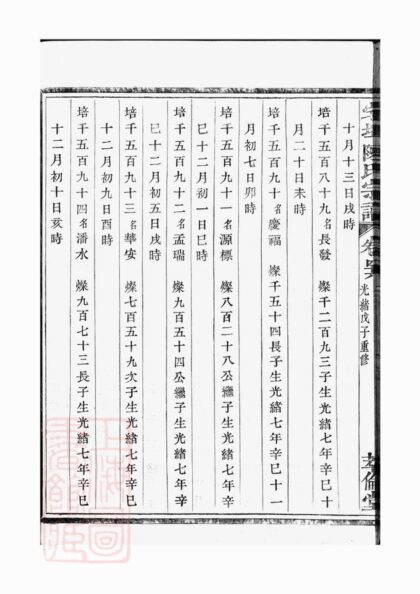 陳氏宗譜
光緒戊子重修
敘倫堂
十月十三日戌時
培千五百八十九名長發 燦千二百九三子生光緒七年辛巳十
月二十日未時
培千五百九十名慶福 燦千五十四長子生光緒七年辛巳十一
月初七日卯時
培千五百九十一名源標 燦八百二十八公繼子生光緒七年辛
巳十二月初一日巳時
培千五百九十二名孟瑞 燦九百五十四公繼子生光緒七年辛
巳十二月初五日戌時
培千五百九十三名華安 燦七百五十九次子生光緒七年辛巳
十二月初九日酉時
培千五百九十四名潘水 燦九百七十三長子生光緒七年辛巳
十二月初十日亥時